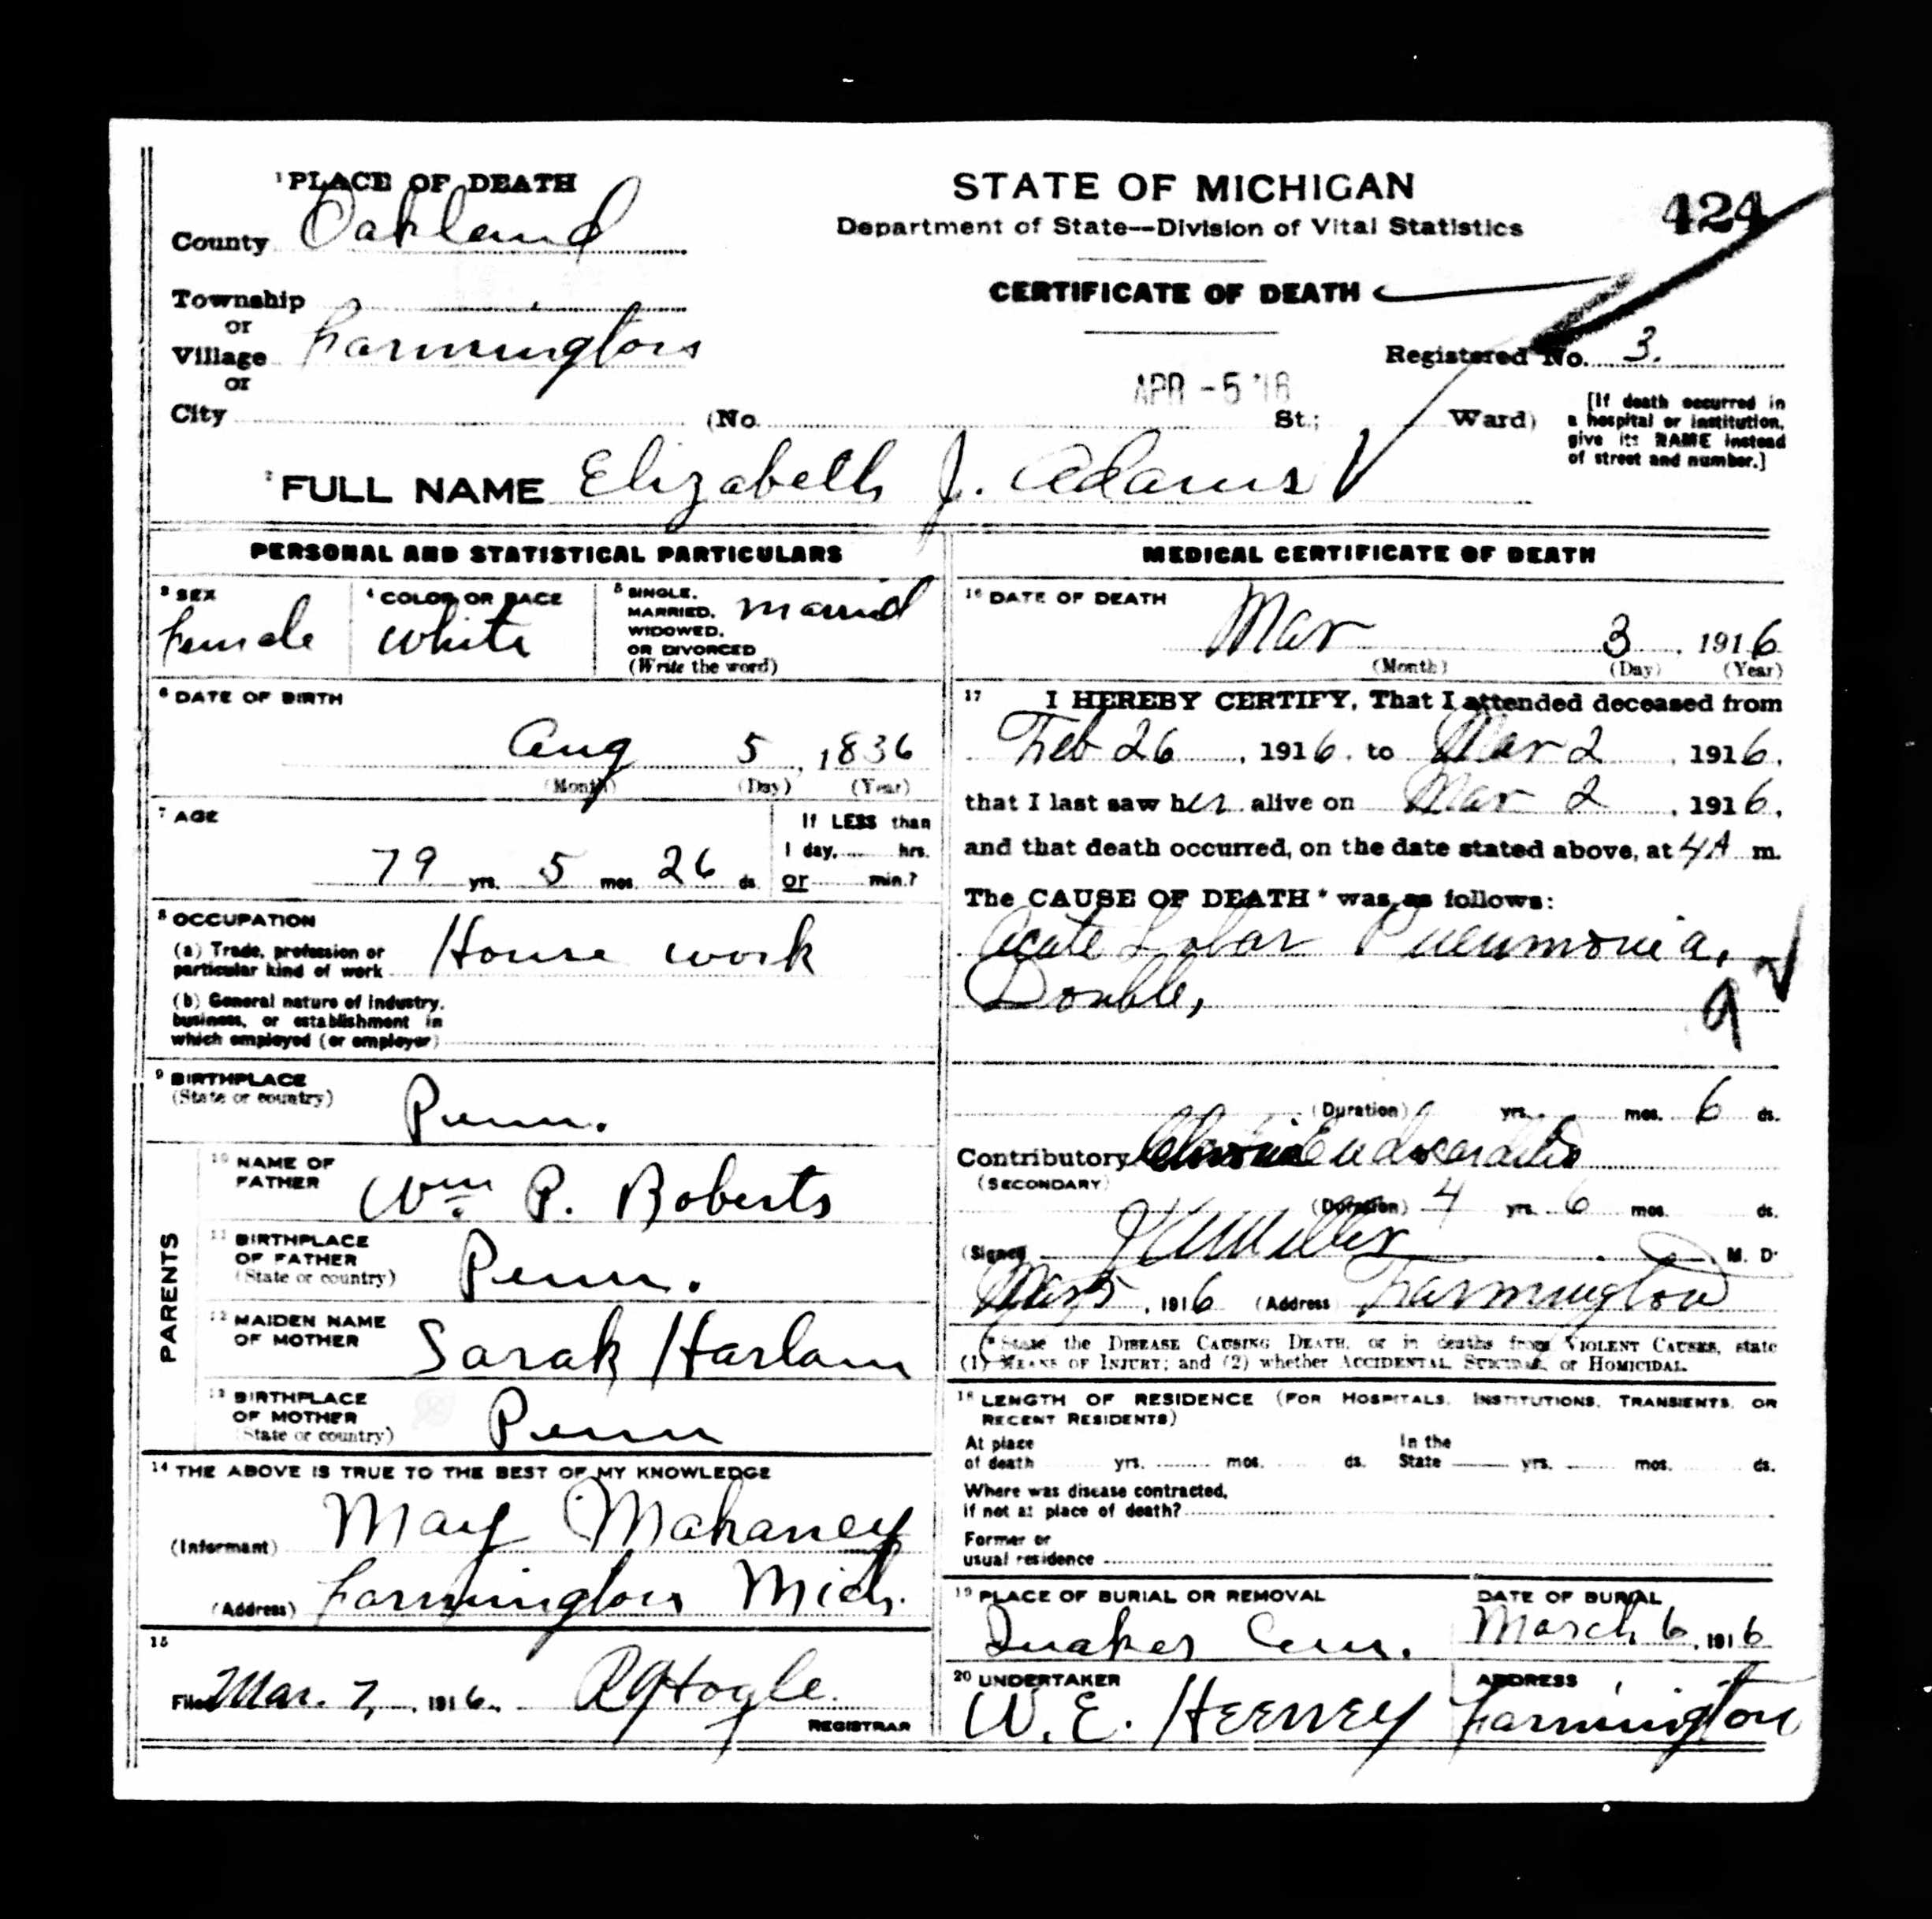 1 PLACE OF DEATH
County Oakland
Township
or
Village Farmington
or
City (No. St.; Ward)
STATE OF MICHIGAN
Department of State—Division of Vital Statistics
424
CERTIFICATE OF DEATH
Registered No. 3.
APR -5 '16
[If death occurred in
a hospital or institution,
give its NAME instead
of street and number.]
2 FULL NAME Elizabeth J. Adams
PERSONAL AND STATISTICAL PARTICULARS
3 SEX
Female
4 COLOR OR RACE
White
5 SINGLE,
MARRIED,
WIDOWED,
OR DIVORCED
(Write the word)
Married
6 DATE OF BIRTH
Aug 5, 1836
(Month) (Day) (Year)
7 AGE
79 yrs. 5 mos. 26 ds.
If LESS than
1 day, hrs.
or min.?
8 OCCUPATION
(a) Trade, profession or
particular kind of work House work
(b) General nature of industry,
business, or establishment in
which employed (or employer)
9 BIRTHPLACE
(State or country)
Penn.
PARENTS
10 NAME OF
FATHER
Wm P. Roberts
11 BIRTHPLACE
OF FATHER
(State or country)
Penn.
12 MAIDEN NAME
OF MOTHER
Sarah Harlam
13 BIRTHPLACE
OF MOTHER
(State or country)
Penn
14 THE ABOVE IS TRUE TO THE BEST OF MY KNOWLEDGE
(Informant) May Mahaney
(Address) Farmington Mich.
15
Filed Mar. 7, 1916. R G Hogle
REGISTRAR
MEDICAL CERTIFICATE OF DEATH
16 DATE OF DEATH
Mar 3, 1916
(Month) (Day) (Year)
17 I HEREBY CERTIFY, That I attended deceased from
Feb 26, 1916, to Mar 2, 1916,
that I last saw her alive on Mar 2, 1916,
and that death occurred, on the date stated above, at 4 A m.
The CAUSE OF DEATH* was as follows:
Acute Lobar Pneumonia,
Double,
9
(Duration) yrs. mos. 6 ds.
Contributory Endocarditis
(SECONDARY)
(Duration) 4 yrs. 6 mos. ds.
(Signed) Miller M. D.
Mar 5, 1916 (Address) Farmington
(*State the DISEASE CAUSING DEATH, or in deaths from VIOLENT CAUSES, state
(1) MEANS OF INJURY; and (2) whether ACCIDENTAL, SUICIDAL, or HOMICIDAL.
18 LENGTH OF RESIDENCE (FOR HOSPITALS, INSTITUTIONS, TRANSIENTS, OR
RECENT RESIDENTS)
At place
of death yrs. mos. ds.
In the
State yrs. mos. ds.
Where was disease contracted,
if not at place of death?
Former or
usual residence
19 PLACE OF BURIAL OR REMOVAL
Quaker Cem.
DATE OF BURIAL
March 6, 1916
20 UNDERTAKER
W. E. Heeney
ADDRESS
Farmington